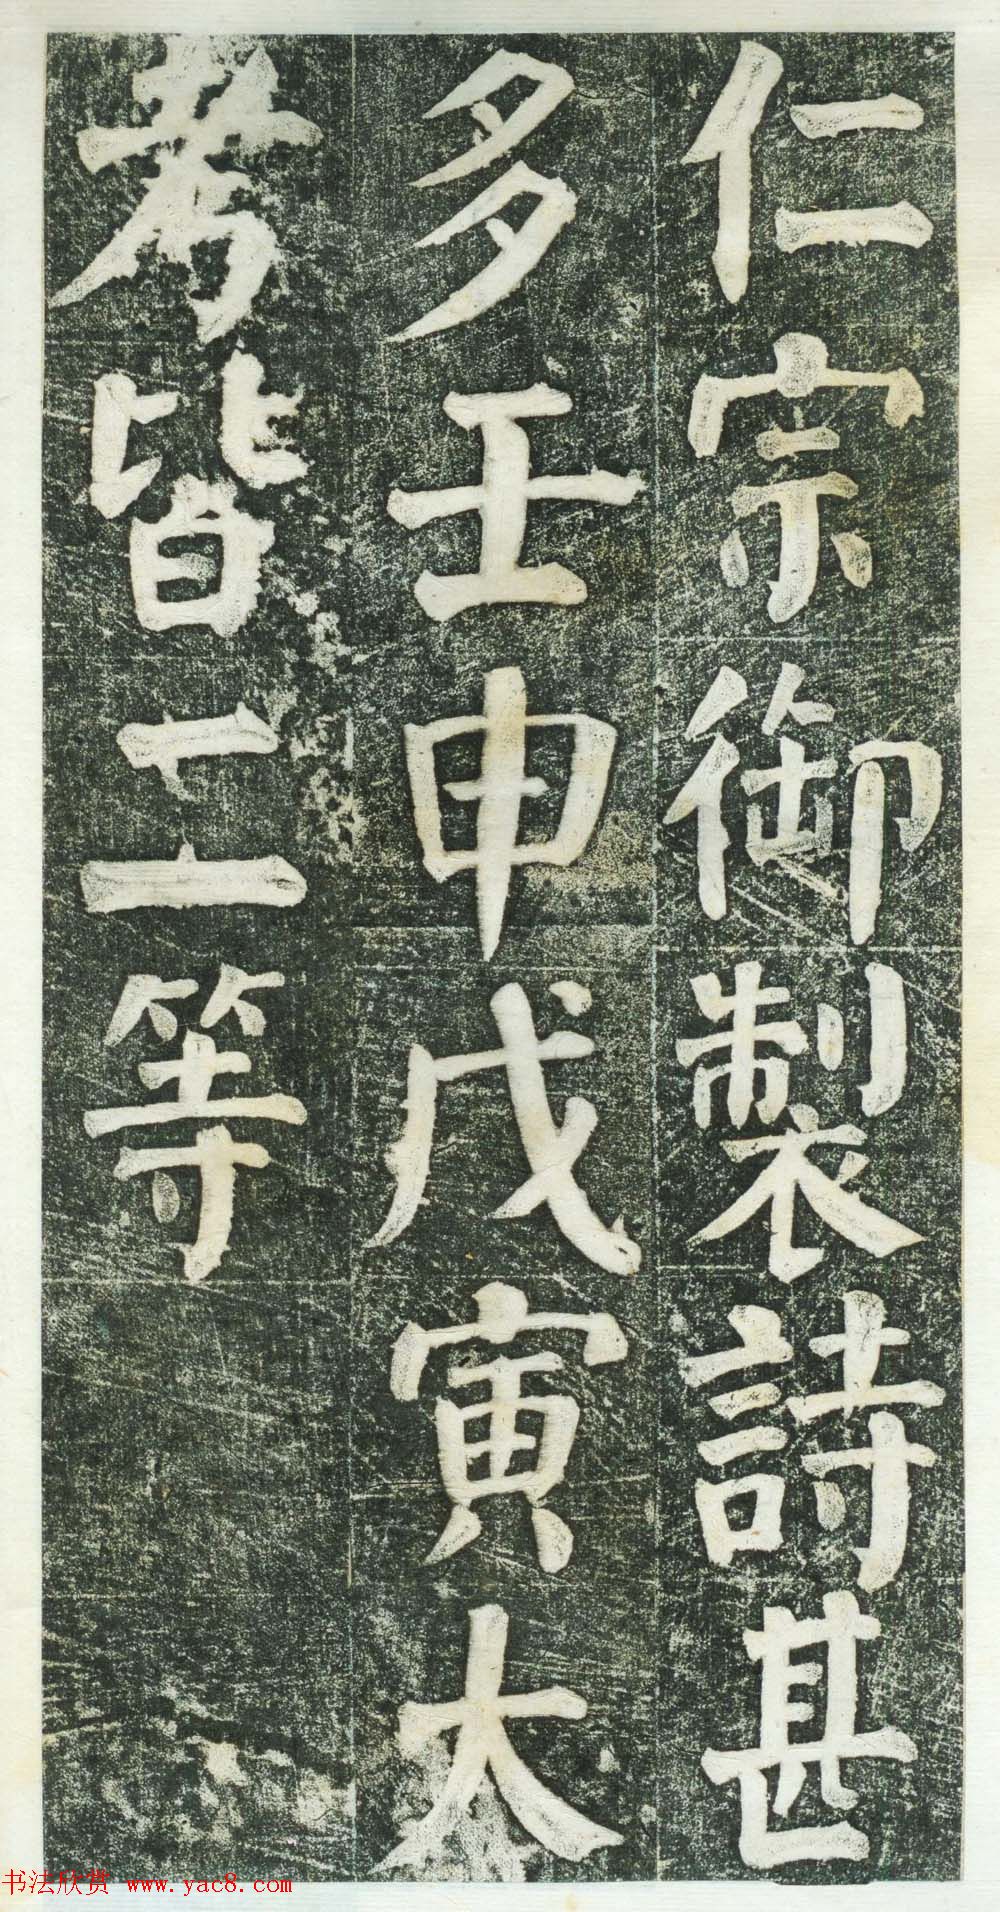 仁宗御製詩甚
多壬申戊寅大
考皆二等
书法欣赏 www.yac8.com